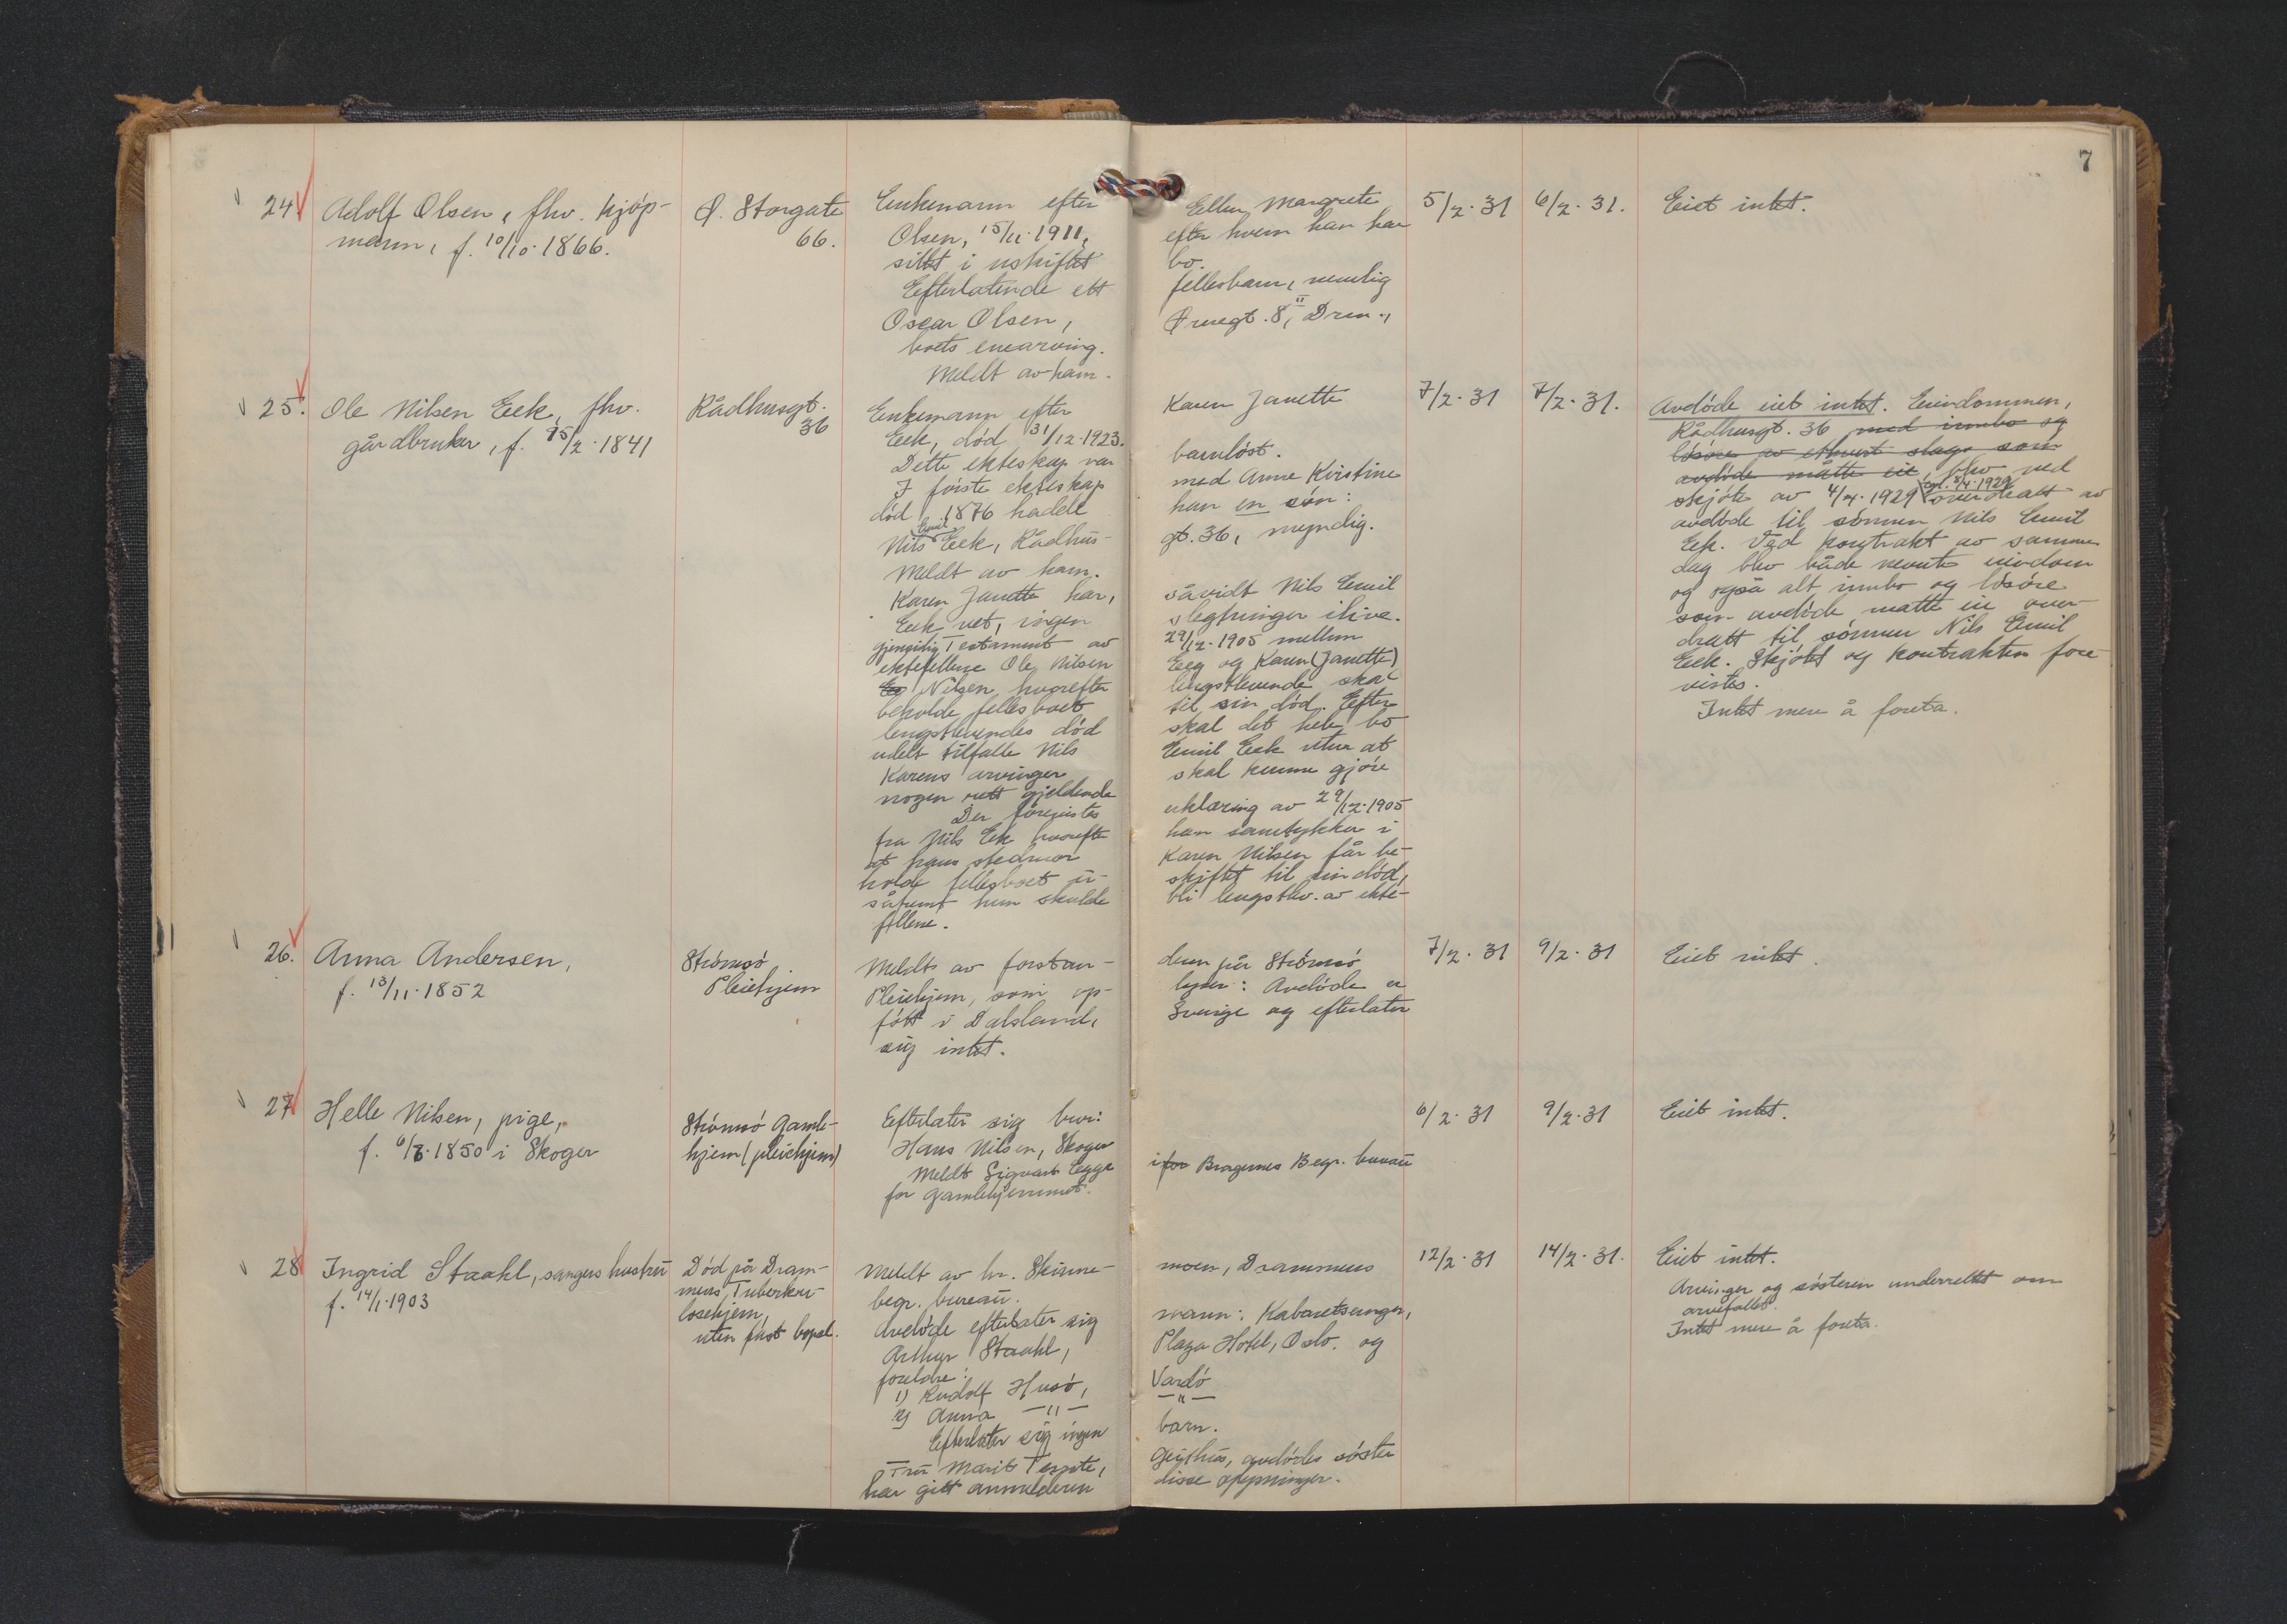 7
24 Adolf Olsen, fhv. kjøp-
mann, f. 10/10.1866.
Ø. Storgate
66.
Enkemann efter Ellen Margrete
Olsen, 15/11.1911, efter hvem han har
sittet i uskiftet bo.
Efterlatende ett fellesbarn, nemlig
Oscar Olsen, Øvregt. 8, II Drm.,
boets enearving.
Meldt av ham.
5/2.31 6/2.31. Eiet intet.
25. Ole Nilsen Eek, fhv.
gårdbruker, f. 25/2.1841
Rådhusgt.
36
Enkemann efter Karen Janette
Eek, død 31/12.1923.
Dette ekteskap var barnløst.
I første ekteskap med Anne Kirstine
død 1876 hadde han en søn:
Nils Emil Eek, Rådhus-gt. 36, myndig.
Meldt av ham.
Karen Janette har, såvidt Nils Emil
Eek vet, ingen slegtninger ilive.
gjensidig Testament av 29/12.1905 mellem
ektefellene Ole Nilsen Eeg og Karen (Janette)
Nilsen, hvorefter lengstlevende skal
beholde fellesboet til sin død. Efter
lengstlevendes død skal det hele bo
udelt tilfalle Nils Emil Eek uten at
Karens arvinger skal kunne gjøre
nogen rett gjeldende
Der forevistes erklæring av 29/12.1905
fra Nils Eek hvorefter han samtykker i
at hans stedmor Karen Nilsen får be-
holde fellesboet u-skiftet til sin død,
såfremt hun skulde bli lengstlev. av ekte-
fellene.
7/2.31 7/2.31.
Avdøde eiet intet. Eiendommen,
Rådhusgt. 36 med innbo og
løsøre av ethvert slags som
avdøde måtte eie, blev ved
skjøte av 4/4.1929 tgl. 8/4.1929 overdratt av
avdøde til sønnen Nils Emil
Eek. Ved kontrakt av samme
dag blev både nevnte eiendom
og også alt innbo og løsøre
som avdøde måtte eie over-
dratt til sønnen Nils Emil
Eek. Skjøtet og kontrakten fore-
vistes.
Intet mere å foreta.
26. Anna Andersen,
f. 13/11.1852
Strømsø
Pleiehjem
Meldt av forstan-deren på Strømsø
Pleiehjem, som op-lyser: Avdøde er
født i Dalsland, Sverige og efterlater
sig intet.
7/2.31 9/2.31 Eiet intet.
27 Helle Nilsen, pige,
f. 6/8.1850 i Skoger
Strømsø Gamle-
hjem (pleiehjem)
Efterlater sig bror:
Hans Nilsen, Skoger
Meldt Sigvart Egge i for Bragernes Begr. bureau
for Gamlehjemmet.
6/2.31 9/2.31 Eiet intet.
28 Ingrid Staahl, sangers hustru
f. 14/1.1903
Død på Dram-
mens Tuberku-
losehjem,
uten fast bopel.
Meldt av hr. Skinne-moen, Drammens
begr. bureau.
Avdøde efterlater sig mann: Kabaretsanger,
Arthur Staahl, Plaza Hotel, Oslo. og
foreldre:
1) Rudolf Husø, Vardø
2) Anna —"— —"—
Efterlater sig ingen barn.
Fru Marit Geithus, avdødes søster
har gitt anmelderen disse oplysninger.
12/2.31 14/2.31. Eiet intet.
Arvinger og søsteren underrettet om
arvefallet.
Intet mere å foreta.